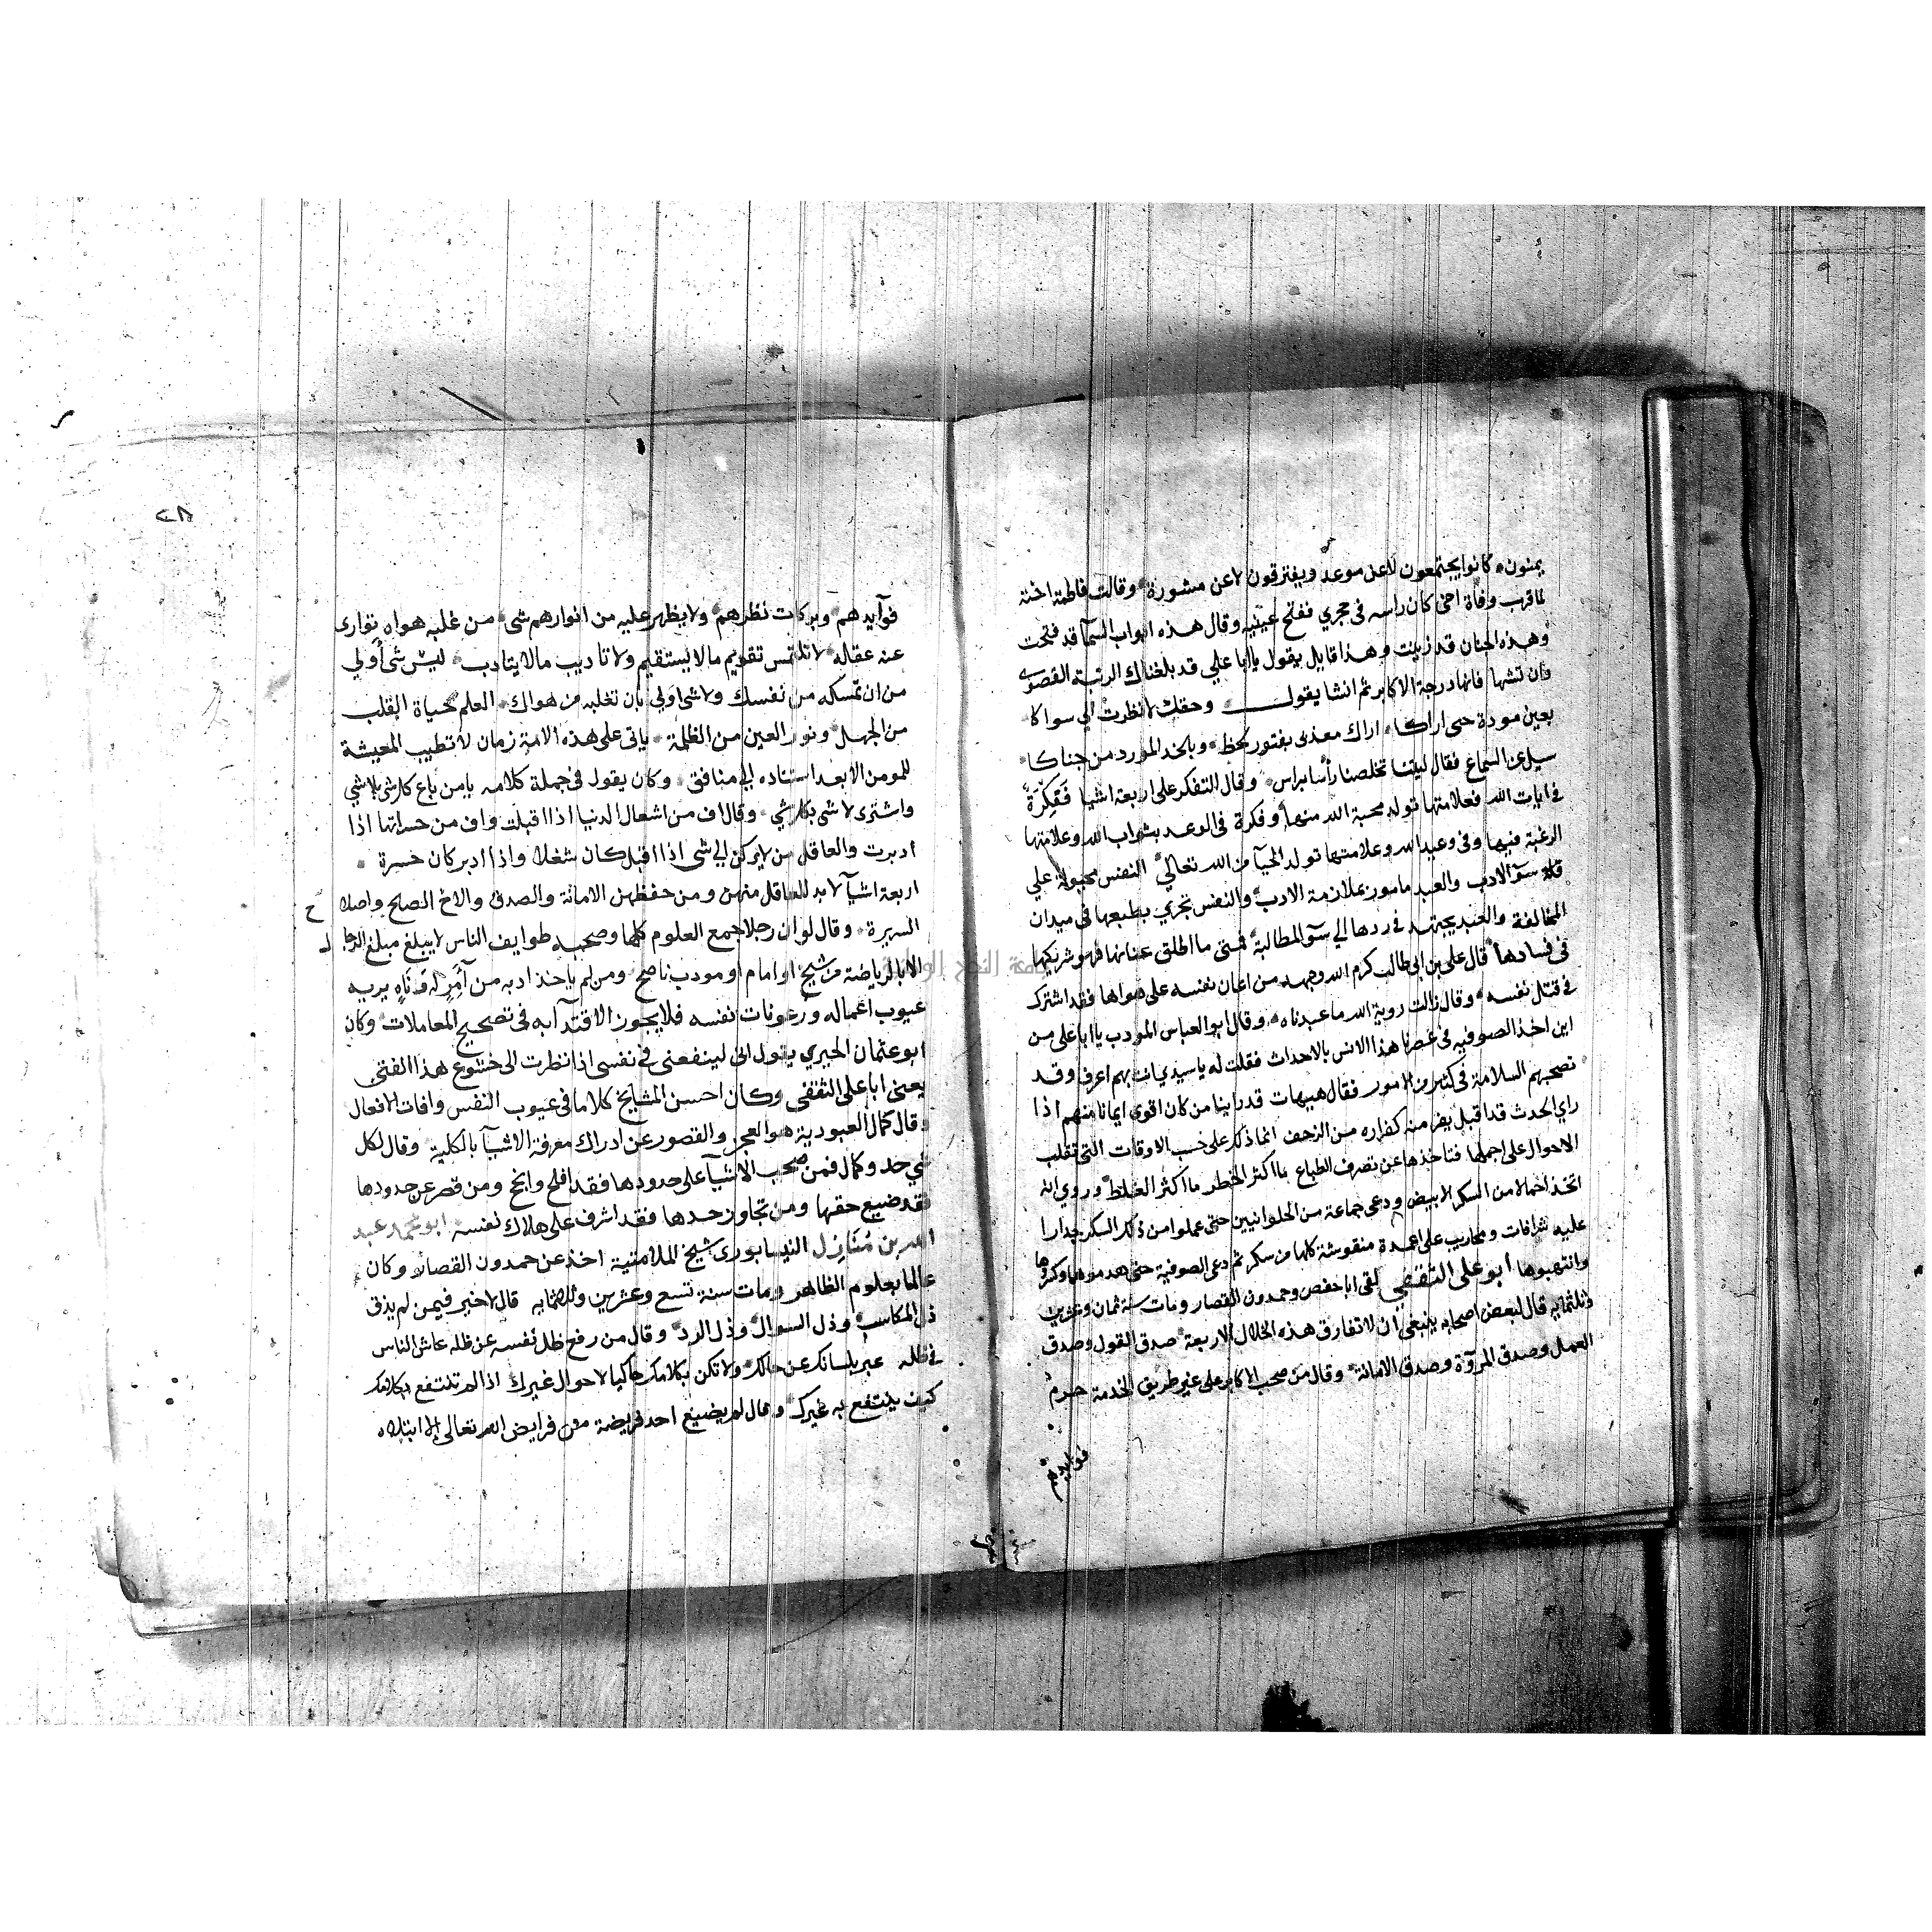 يمنون كانوا يجتمعون لا عن موعد ويفترقون لا عن مشورة وقالت فاطمة اخته
لما قرب وفاة اخي كان راسه في حجري ففتح عينيه وقال هذه ابواب السمآ قد فتحت
وهذه الجنان قد زينت وهذا قايل يقول يا ابا علي قد بلغناك الرتبة القصوى
وان تشها فانها درجة الاكابر ثم انشا يقول وحقك لا نظرت الي سواكا
بعين مودة حتى اراكا اراك معذبى بفتور لحظ وبالخد المورد من جناكا
سيل عن السماع فقال ليتنا تخلصنا رأسا براس وقال التفكر على اربعة اشيا فَفِكْرَةٌ
في ايات الله فعلامتها تولد محبة الله منها وفكرة في الوعد بثواب الله وعلامتها
الرغبة فيها وفي وعيد الله وعلامتها تولد الحيآ من الله تعالي النفس مجبولة علي
قلة سؤ الادب والعبد مامور بملازمة الادب والنفس تجري بطبعها في ميدان
المخالفة والعبد يجتهد في ردها الي سؤ المطالبة فمتى ما اطلق عنانها فهو شريكها
في فسادها قال على بن ابى طالب كرم الله وجهه من اعان نفسه على هواها فقد اشترك
في قتل نفسه وقال زالت روية الله ما عبدناه وقال ابو العباس المودب يا ابا على من
اين اخذ الصوفيه في عصرنا هذا الانس بالاحداث فقلت له يا سيدي انت بهم اعرف وقد
تصحبهم السلامة في كثير من الامور فقال هيهات قد راينا من كان اقوى ايمانا منهم اذا
راي الحدث قد اقبل يفر منه كفراره من الزحف انما ذلك على حسب الاوقات التى تغلب
الاحوال على اجملها فتاخذها عن تصرف الطباع ما اكثر الخطر ما اكثر الغلط وروي انه
اتخذ احمالا من السكر الابيض ودعى جماعة من الحلوانيين حتى عملوا من ذلك السكر جدارا
عليه شرافات ومحاريب على اعمدة منقوشة كلها من سكر ثم دعى الصوفية حتى هدموها وكسروها
وانتهبوها ابو على الثقفي لقى ابا حفص وحمدون القصار ومات سنة ثمان وعشرين
وثلثمايه قال لبعض اصحابه ينبغى ان لا تفارق هذه الخلال الاربعة صدق القول وصدق
العمل وصدق المروّة وصدق الامانة وقال من صحب الاكابر على غير طريق الخدمة حرم
فوايدهم
٢٨
فوآيدهم وبركات نظرهم ولا يظهر عليه من انوارهم شى من غلبه هواه توارى
عنه عقاله لا تلتمس تقويم ما لا يستقيم ولا تاديب ما لا يتادب ليس شى أولي
من ان تمسكه من نفسك ولا شى اولى بان تغلبه من هواك العلم حياة القلب
من الجهل ونور العين من الظلمة ياتى على هذه الامة زمان لا تطيب المعيشة
للمومن الا بعد استناده الي منافق وكان يقول في جملة كلامه يا من باع كل شى بلا شي
واشترى لا شى بكل شي وقال اف من اشعال الدنيا اذا اقبلت واف من حسراتها اذا
ادبرت والعاقل من لا يركن الي شى اذا اقبل كان شغلا واذا ادبر كان حسرة
اربعة اشيآ لا بد للعاقل منهن ومن حفظهن الامانة والصدق والاخ الصالح واصلاح
السريرة وقال لو ان رجلا جمع العلوم كلها وصحب طوايف الناس لا يبلغ مبلغ الرجال
الا بالرياضة من شيخ او امام او مودب ناصح ومن لم ياخذ ادبه من آمِرٍ له وناهٍ يريه
عيوب اعماله ورعونات نفسه فلا يجوز الاقتدآ به في تصحيح المعاملات وكان
ابو عثمان الحيري يقول انى لينفعنى في نفسى اذا نظرت الى خشوع هذا الفتى
يعنى ابا على الثقفى وكان احسن المشايخ كلاما في عيوب النفس وافات الافعال
وقال كمال العبودية هو العجز والقصور عن ادراك معرفة الاشيآ بالكلية وقال لكل
شي حد وكمال فمن صحب الاشيآ على حدودها فقد افلح وانجح ومن قصر عن حدودها
فقد ضيع حقها ومن تجاوز حدها فقد اشرف على هلاك نفسه ابو محمد عبد
الله بن مُنَازِل النيسابورى شيخ الملامتية اخذ عن حمدون القصار وكان
عالما بعلوم الظاهر ومات سنة تسع وعشرين وثلثمايه قال لا خير فيمن لم يذق
ذل المكاسب وذل السوال وذل الرد وقال من رفع ظل نفسه عن ظله عاش الناس
في ظله عبر بلسانك عن حالك ولا تكن بكلامك حاكيا لاحوال غيرك اذا لم تنتفع بكلامك
كيف ينتفع به غيرك وقال لم يضيع احد فريضة من فرايض الله تعالى الا ابتلاه